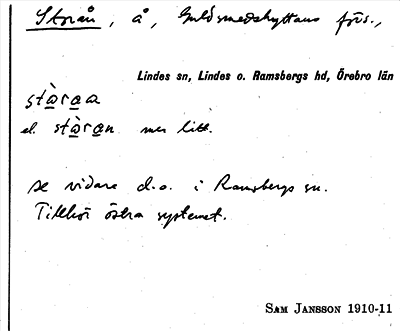 Storån, å, Guldsmedshyttans förs.,
Lindes sn, Lindes o. Ramsbergs hd, Örebro län
stà̱ra̱a
el. stà̱ra̱n mer litt.
se vidare d.o. i Ramsbergs sn.
Tillhör östra systemet.
SAM JANSSON 1910-11